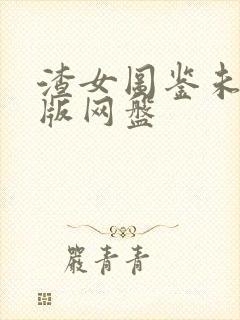 渣女图鉴未
版网盘
严青青